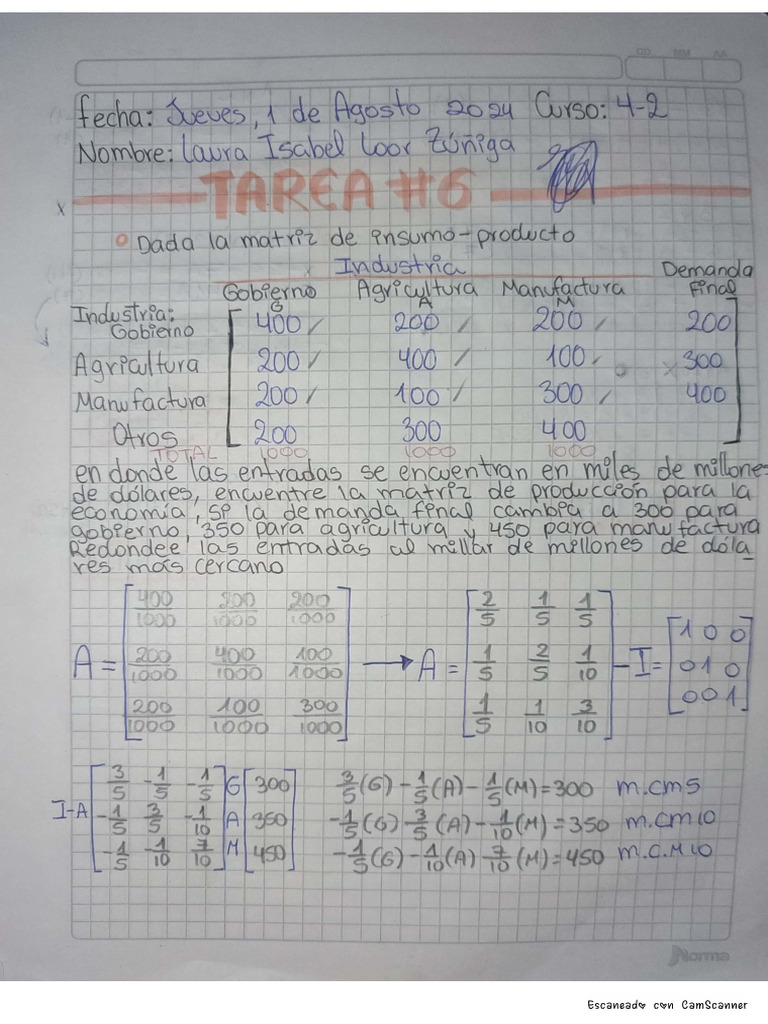 DD MM AA
Fecha: Jueves, 1 de Agosto 2024 Curso: 4-2
Nombre: Laura Isabel Loor Zúñiga
TAREA #6
x
Dada la matriz de insumo-producto
Industria
Demanda
Gobierno Agricultura Manufactura Final
G A M
Industria:
Gobierno 400 200 200 200
Agricultura 200 400 100 300
Manufactura 200 100 300 400
Otros 200 300 400
TOTAL 1000 1000 1000
en donde las entradas se encuentran en miles de millones
de dólares, encuentre la matriz de producción para la
economía, si la demanda final cambia a 300 para
gobierno, 350 para agricultura y 450 para manufactura
Redondee las entradas al millar de millones de dóla-
res más cercano
A = [400/1000 200/1000 200/1000 → A = [2/5 1/5 1/5 - I = [1 0 0
200/1000 400/1000 100/1000 1/5 2/5 1/10 0 1 0
200/1000 100/1000 300/1000] 1/5 1/10 3/10] 0 0 1]
I-A [3/5 -1/5 -1/5] G [300] 3/5(G) - 1/5(A) - 1/5(M) = 300 m.cm5
-1/5 3/5 -1/10 A 350 -1/5(G) - 3/5(A) - 1/10(M) = 350 m.cm10
-1/5 -1/10 7/10 M 450 -1/5(G) - 1/10(A) - 7/10(M) = 450 m.c.M10
Norma
Escaneado con CamScanner